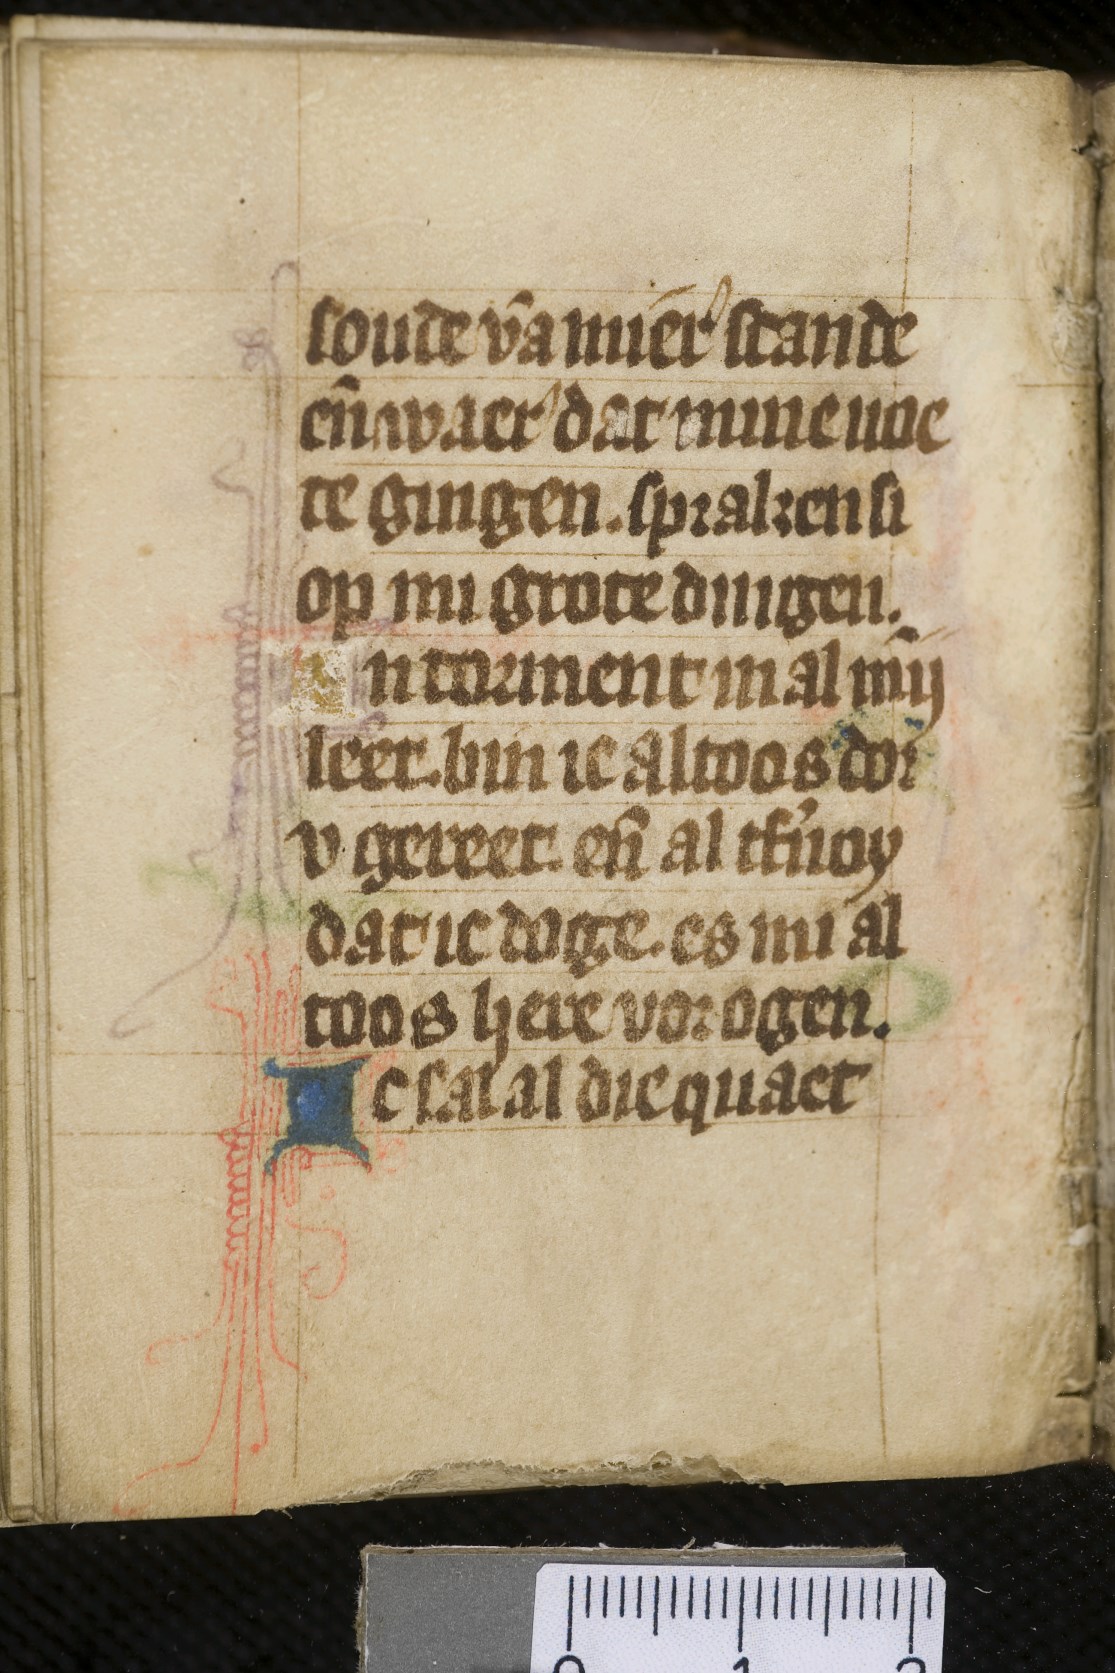 soude vā mier stande
en̄ waer dat mine uoe
te gingen. spraken si
op mi grote dingen.
In torment in al mīj
leet. bin ic altoos dor
v gereet. en̄ al
dat ic doge. es mi al
toos here vor ogen.
Ic sal al die quaet
0 1 2